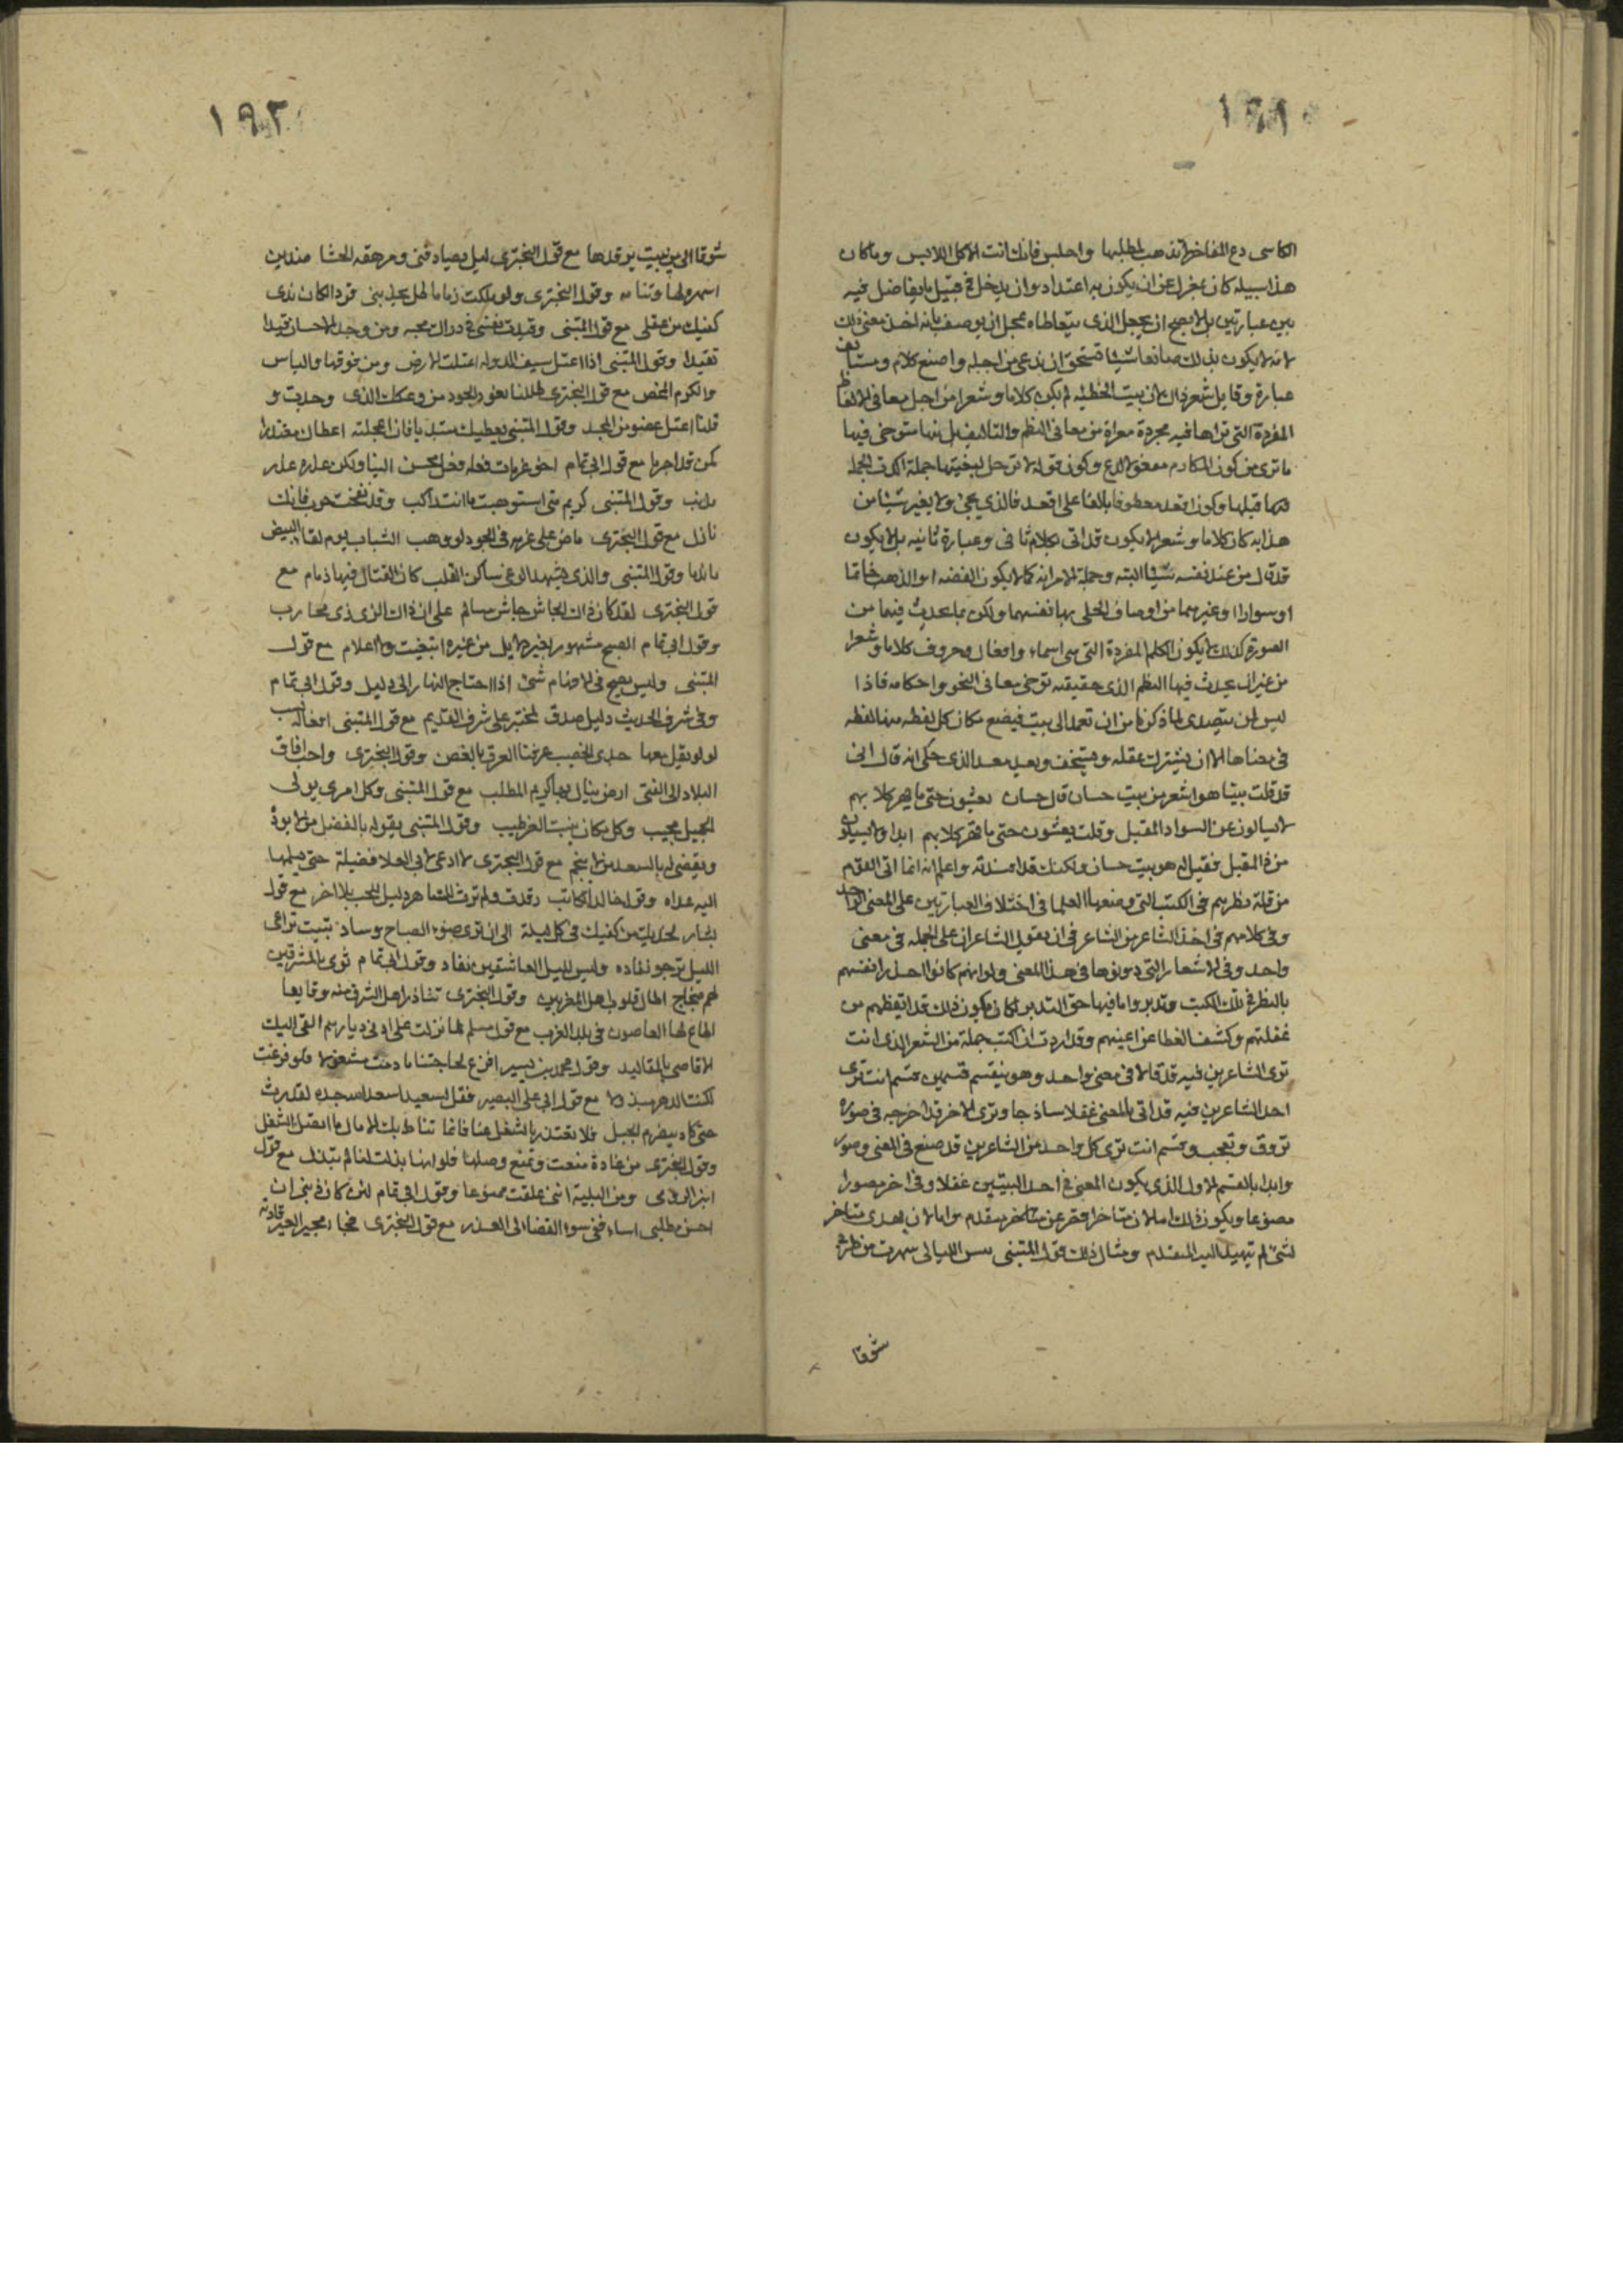 ١٩١
الكاسى دع المفاخر لا تذهب لمطلبها واجلس فانك انت الاكل اللابس وما كان
هذا سبيله كان بمعزل عن ان يكون به اعتداد وان يدخل فى قبيل ما يفاضل فيه
بين عبارتين بل لا يصح ان يجعل الذى يتعاطاه بمحل ان يوصف بانه اخذ معنى ذلك
لانه لا يكون بذلك صانعا شيئا يستحق ان يدعى من اجله واضع كلام ومستانف
عبارة وقايل شعر ذاك ان بيت الحطئه لم يكن كلاما وشعرا من اجل معانى الالفاظ
المفردة التى تراها فيه مجردة معراة من معانى النظم والتاليف بل منها متوخى فيها
ما ترى من كون المكارم مفعولا لدع وكون قوله لا ترحل لبغيتها جملة اكدت الجملة
قبلها وكون اقعد معطوفا بالفا على اقعد فالذى يجئ ولا يغير شيئا من
هذا به كان كلاما وشعرا لا يكون قد اتى بكلام ثانى وعبارة ثانيه بل لا يكون
قد قال من عند نفسه شيئا البته وجملة الامر انه كما لا يكون الفضه او الذهب خاتما
او سوارا او غيرهما من اوصاف الحلى بها نفسهما ولكن بما يحدث فيهما من
الصورة كذلك لا يكون الكلم المفردة التى هى اسماء وافعال وحروف كلاما وشعرا
من غير ان يحدث فيها النظم الذى حقيقته توخى معانى النحو واحكامه فاذا
ليس لمن يتصدى لما ذكرنا من ان تعمد الى بيت فيضع مكان كل لفظه منها لفظه
فى معناها الا ان يشترك عقله ويستخف ويعد معد الذى حكى انه قال انى
قد قلت بيتا هو اشعر من بيت حسان قال حسان يغشون حتى ما تهر كلابهم
لا يسالون عن السواد المقبل وقلت يغشون حتى ما تهر كلابهم ابدا ولا يسالون
من ذا المقبل فقيل له هو بيت حسان ولكنك قد افسدته واعلم انه انما اتى القوم
من قلة نظرهم فى الكتب التى وضعها العلما فى اختلاف العبارتين على المعنى الواحد
وفى كلامهم فى اخذ الشاعر من الشاعر فى ان يقول الشاعران على الجمله فى معنى
واحد وفى الاشعار التى دونوها فى هذا المعنى ولو انهم كانوا انفسهم
بالنظر فى تلك الكتب وتدبروا ما فيها حق التدبر لكان يكون ذلك قد ايقظهم من
غفلتهم وكشف الغطا عن اعينهم وقد اردت ان اكتب جملة من الشعر الذى انت
ترى الشاعرين فيه قد قالا فى معنى واحد وهو ينقسم قسمين قسم انت ترى
احد الشاعرين فيه قد اتى بالمعنى غفلا ساذجا وترى الاخر قد اخرجه فى صورة
تروق وتعجب وقسم انت ترى كل واحد من الشاعرين قد صنع فى المعنى وصور
وابدا بالقسم الاول الذى يكون المعنى فى احد البيتين غفلا وفى اخر مصورا
مصنوعا ويكون ذلك اما لان متاخرا قصر عن متقدم واما لان هدى متاخر
لشئ لم يتهيا اليه المتقدم ومثال ذلك قول المتنبى بيس الليالى سهرت من طربى
شوقا
١٩٢
شوقا الى من يبيت يرقدها مع قول البختري ليل يصادفنى ومرهفه الحشا ضدين
اسهره لها وتنامه وقول البختري ولو ملكت زماعا ظل يجذبنى قودا لكان ندى
كفيك من عقلى مع قول المتنبى وقيدت نفسى فى ذراك محبه ومن وجد الاحسان قيدا
تقيدا وقول المتنبى اذا اعتل سيف الدوله اعتلت الارض ومن فوقها والباس
والكرم المحض مع قول البختري ظللنا نعود الجود من وعكك الذى وجدت و
قلنا اعتل عضو من المجد وقول المتنبى يعطيك مبتديا فان اعجلته اعطاك معتذرا
كمن قد اجرما مع قول ابى تمام اخو عزمات فعله فعل محسن الينا ولكن عذره عذر
مذنب وقول المتنبى كريم متى استوهبت ما انت راكب وقد لقحت حرب فانك
نازل مع قول البختري ماض على عزمه فى الجود لو وهب الشباب يوم لقاء البيض
ما ندما وقول المتنبى والذى يشهد الوغى ساكن القلب كان القتال فيها ذمام مع
قول البختري لقد كان ذاك الجاش جاش مسالم على ان ذاك الزى زى محارب
وقول ابى تمام الصبح مشهور بغير دلايل من غيره ابتغيت ولا اعلام مع قول
المتنبى وليس يصح فى الافهام شئ اذا احتاج النهار الى دليل وقول ابى تمام
وفى شرف الحديث دليل صدق لمختبر على شرف القديم مع قول المتنبى افعاله نسب
لو لم يقل معها جدى الخصيب عرفنا العرق بالغصن وقول البختري واحب افاق
البلاد الى الفتى ارض ينال بها كريم المطلب مع قول المتنبى وكل امرى يولى
الجميل محبب وكل مكان ينبت العز طيب وقول المتنبى يقر له بالفضل من لا يوده
ويقضى له بالسعد من لا ينجم مع قول البختري لا ادعى لابى العلا فضيلة حتى يسلمها
اليه عداه وقول خالد الكاتب رقدت ولم ترث للساهر وليل المحب بلا اخر مع قول
بشار لخديك من كفيك فى كل ليلة الى ان ترى ضوء الصباح وساد تبيت تراعى
الليل ترجو نفاده وليس لليل العاشقين نفاد وقول ابى تمام ثوى بالمشرقين
لهم ضجاج اطار قلوب اهل المغربين وقول البختري تناذر اهل الشرق منه وقايعا
اطاع لها العاصون فى بلد الغرب مع قول مسلم لما نزلت على ادنى ديارهم القى اليك
الاقاصى بالمقاليد وقول محمد بن بسير افرغ لحاجتنا ما دمت مشغولا فلو فرغت
لكنت الدهر مبذولا مع قول ابى على البصير فقل لسعيد اسعد الله جده لقد رث
حتى كاد ينصرم الحبل فلا تعتذر بالشغل عنا فانما تناط بك الامال ما اتصل الشغل
وقول البختري من غادة منعت وتمنع وصلها فلو انها بذلت لنا لم تبذل مع قول
ابن الرومى ومن البلية اننى علقت ممنوعا وقول ابى تمام لئن كان ذنبى ان
احسن مطلبى اساء ففى سوء القضا لى العذر مع قول البختري